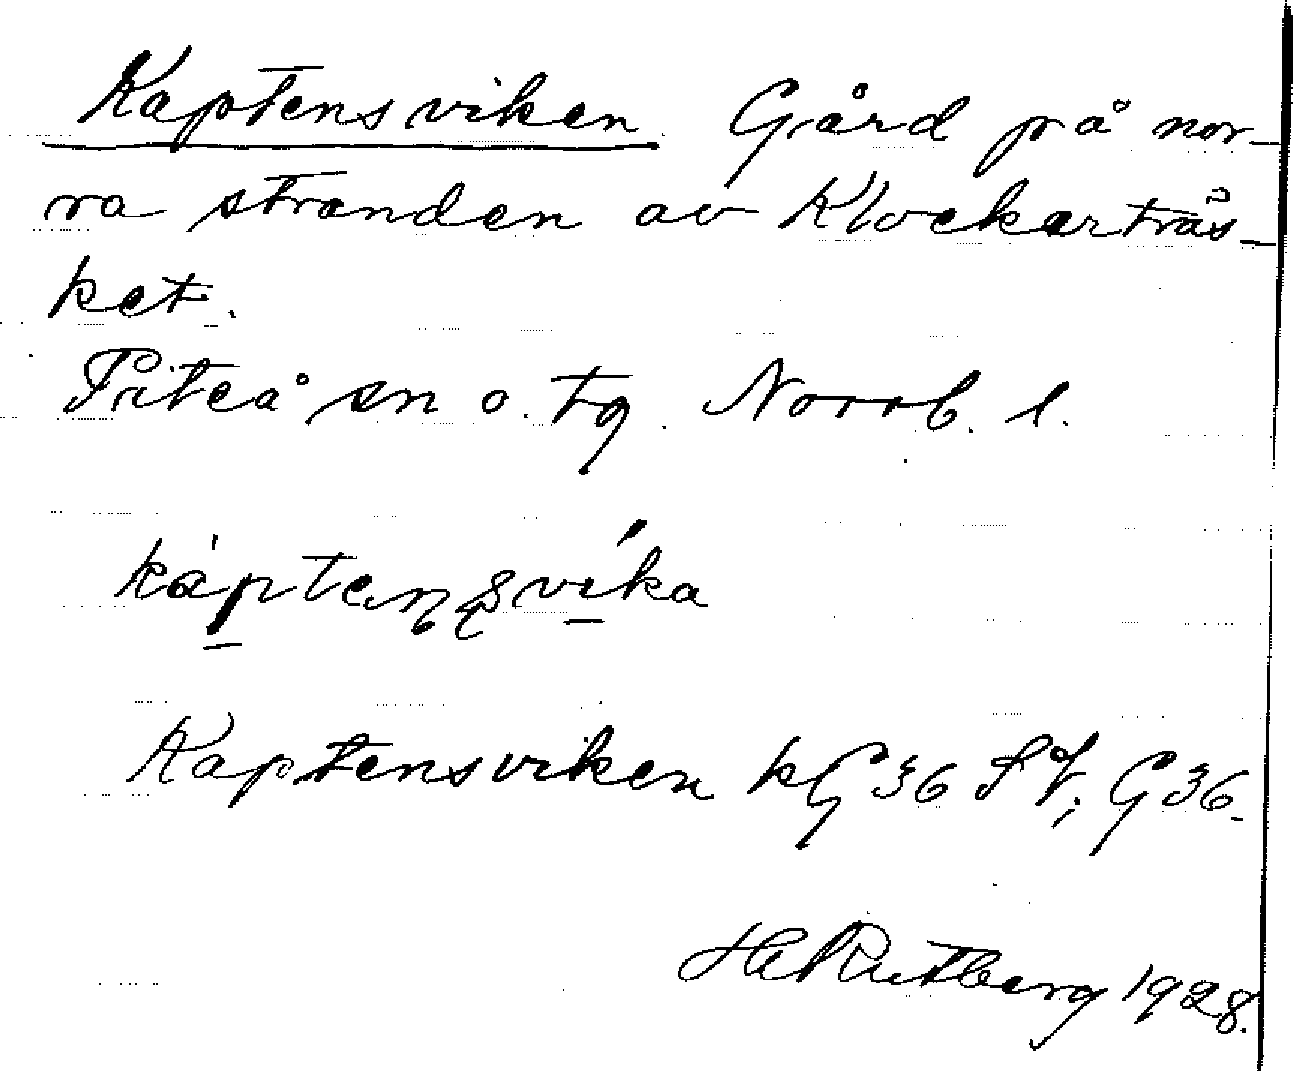 Kaptensviken. Gård på nor-
ra stranden av Klockarträs-
ket.
Piteå sn o. tg. Norrb. l.
Kaptensviken kG 36 SV; G 36.
H Rutberg 1928.